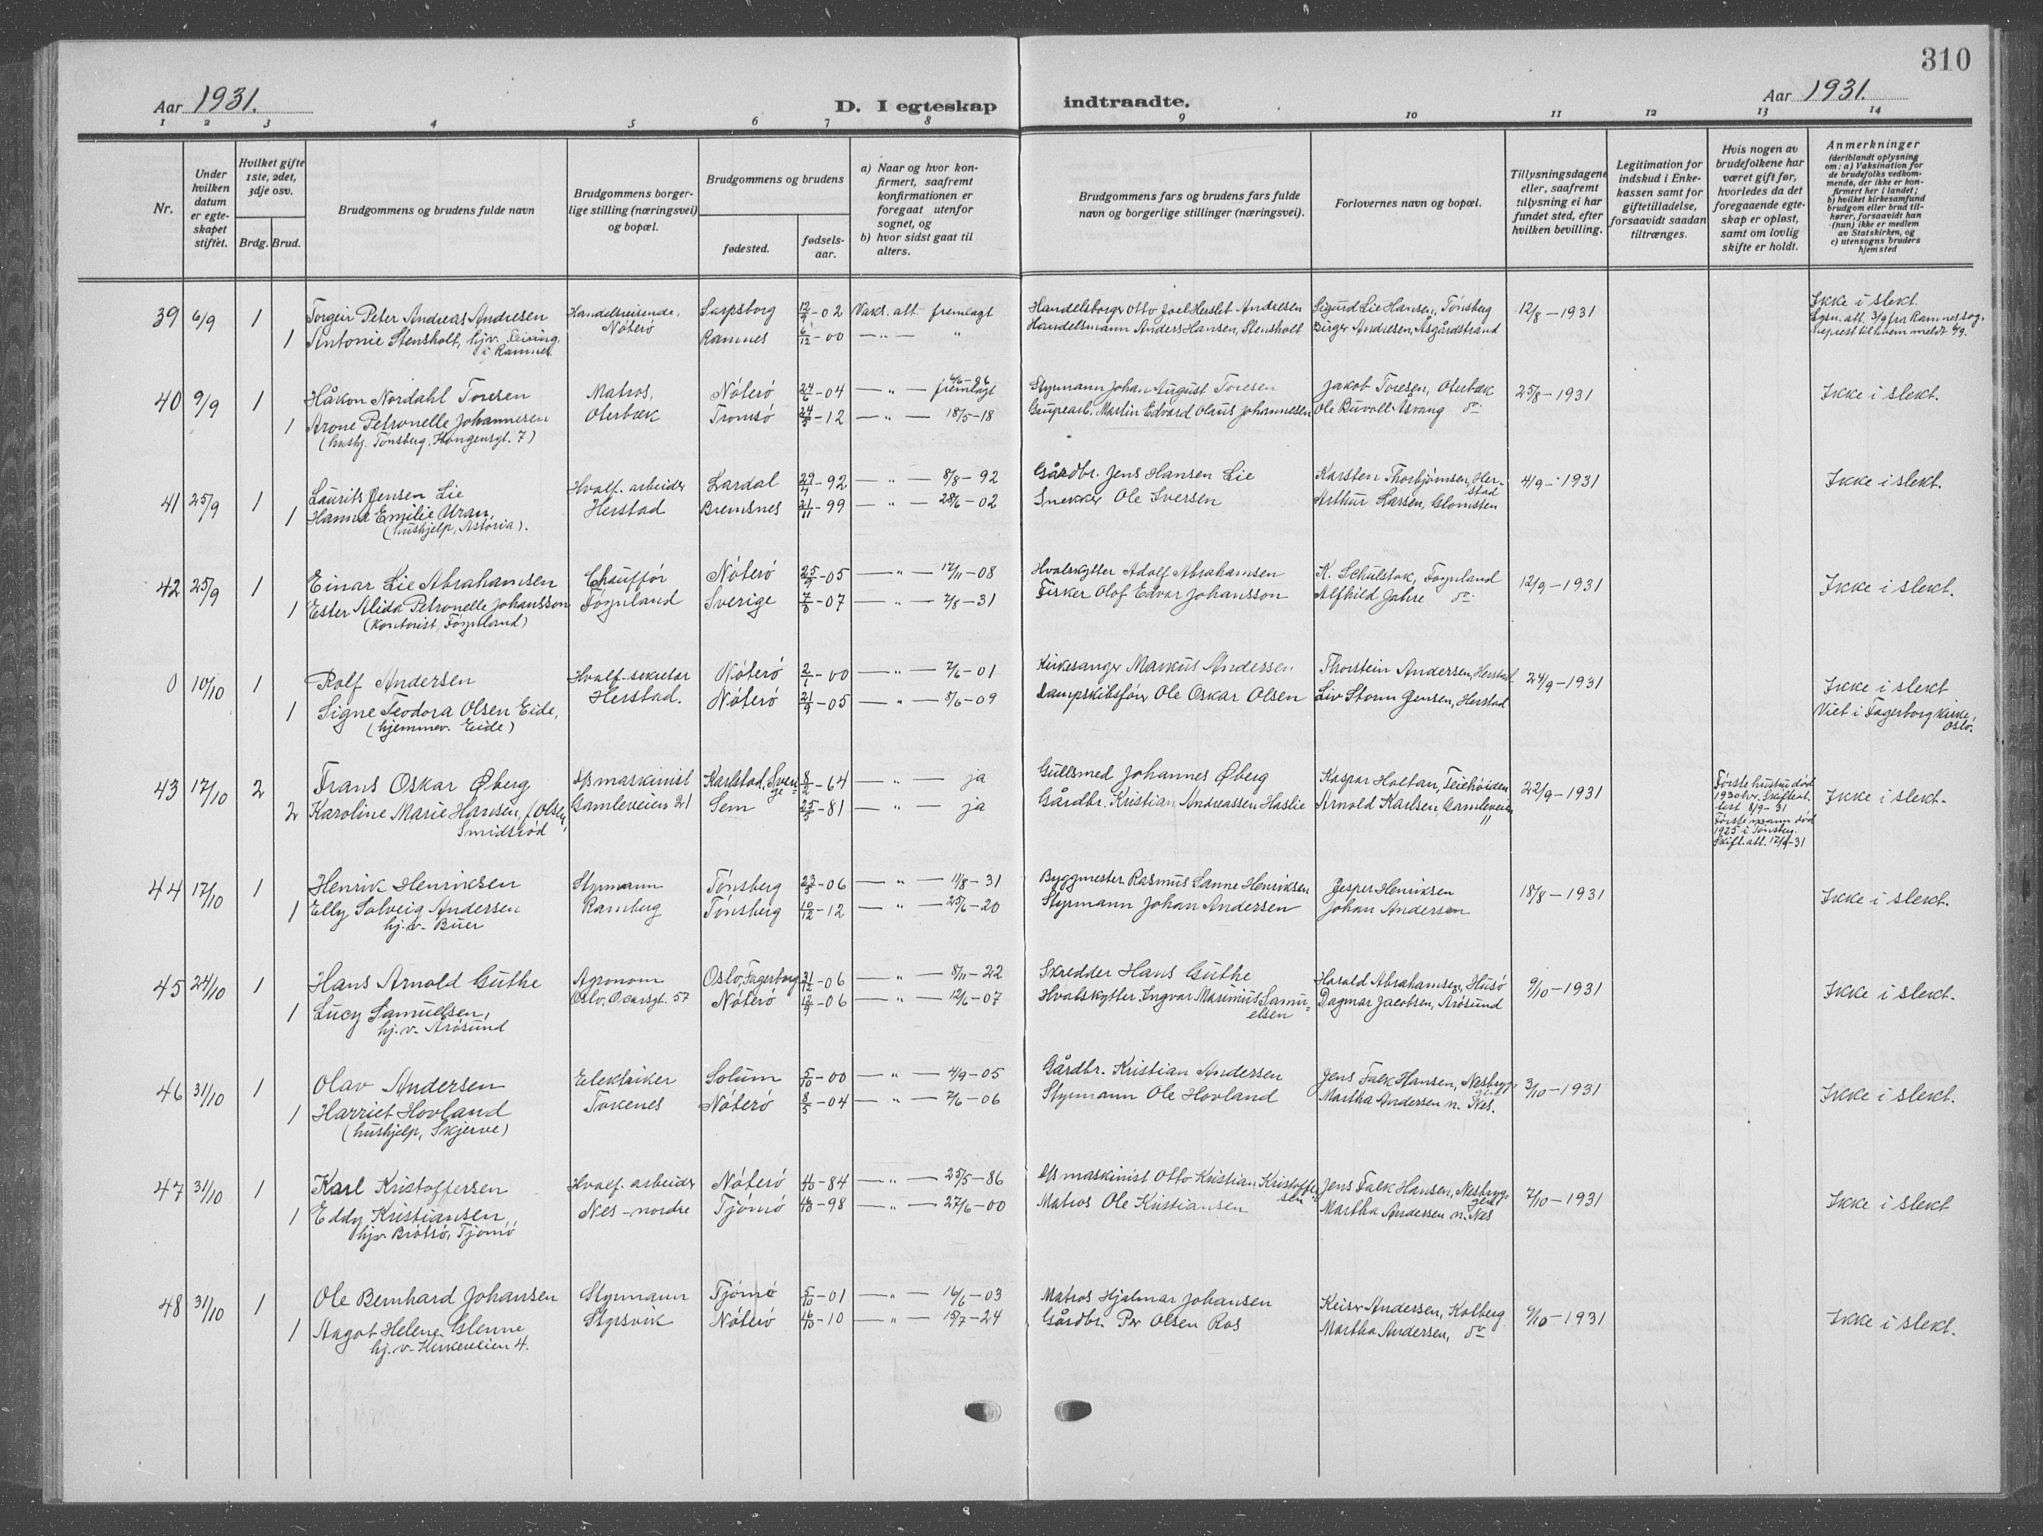 310
Aar 1931.
D. I egteskap
indtraadte.
Aar 1931.
1 2 3 4 5 6 7 8 9 10 11 12 13 14
Nr.
Under hvilken datum er egteskapet stiftet.
Hvilket gifte 1ste, 2det, 3dje osv.
Brdg. Brud.
Brudgommens og brudens fulde navn
Brudgommens borgerlige stilling (næringsvei) og bopæl.
Brudgommens og brudens
fødested.
fødselsaar.
a) Naar og hvor konfirmert, saafremt konfirmationen er foregaat utenfor sognet, og
b) hvor sidst gaat til alters.
Brudgommens fars og brudens fars fulde navn og borgerlige stillinger (næringsvei).
Forlovernes navn og bopæl.
Tillysningsdagene eller, saafremt tillysning ei har fundet sted, efter hvilken bevilling.
Legitimation for indskud i Enkekassen samt for giftetilladelse, forsaavidt saadan tiltrænges.
Hvis nogen av brudefolkene har været gift før, hvorledes da det foregaaende egteskap er opløst, samt om lovlig skifte er holdt.
Anmerkninger
(deriblandt oplysning om: a) Vaksination for de brudefolks vedkommende, der ikke er konfirmert her i landet; b) hvilket kirkesamfund brudgom eller brud tilhører, forsaavidt han (hun) ikke er medlem av Statskirken, og c) utensogns bruders hjemsted
39 6/9 1 Torgeir Peter Andreas Andresen Handelsreisende, Sarpsborg 12/9-02 Vaks. att. fremlagt Handelsborger Otto Joel Herslet Andresen Sigurd Lie Hansen, Tønsberg 12/8-1931 Ikke i slekt.
1 Antonie Stensholt, hjv. Nøterø Ramnes 6/12-00 —"— " Handelsmann Anders Hansen, Stensholt Birger Andresen, Åsgårdstrand
i Ramnes
40 9/9 1 Håkon Nordahl Toresen Matros, Nøterø 24/6-04 —"— fremlagt Styrmann Johan August Toresen Jakob Toresen, Oterbæk 25/8-1931 Ikke i slekt.
1 Arone Petronelle Johannesen Oterbæk Tromsø 24/5-12 —"— 18/5-18 Martin Edvard Olaus Johannesen Ole Buvoll Åsvang do
(hushj. Tønsberg, Kongensgt. 7)
41 25/9 1 Laurits Jensen Lie Hvalf. arbeider Lardal 29/7-92 —"— 8/8-92 Gårdbr. Jens Hansen Lie Karsten Thorbjørnsen, Herstad 4/9-1931 Ikke i slekt.
1 Hanna Emilie Uran, Herstad Bremsnes 21/11-99 —"— 28/6-02 Snekker Ole Iversen Arthur Larsen, Glomsten
(hushjelp, Astoria).
42 25/9 1 Einar Lie Abrahamsen Chauffør Nøterø 25/9-05 —"— 17/11-08 Hvalskytter Adolf Abrahamsen K. Schulstok, Føynland 12/9-1931 Ikke i slekt.
1 Ester Alida Petronelle Johansson Føynland Sverige -07 —"— 2/8-31 Fisker Olof Edvar Johansson Alfhild Jahre do
(Kontorist, Føynland)
0 10/10 1 Rolf Andersen Hvalf.-sekretær Nøterø 2/1-00 —"— 7/6-01 Kirkesanger Markus Andersen Thorstein Andersen, Herstad 24/9-1931 Ikke i slekt
1 Signe Teodora Olsen Eide, Herstad. Nøterø 21/9-05 —"— 8/6-09 Dampskibsfører Ole Oskar Olsen Liv Storm Jensen, Herstad Viet i Fagerborg kirke, Oslo.
(hjemmev. Eide)
43 17/10 2 Frans Oskar Øberg D/S maskinist Karlstad, Sverige 8/2-64 —"— ja Gullsmed Johannes Øberg Kaspar Holtan, Teiehøiden 22/9-1931 Første hustru død 1930 Ikke i slekt.
2 Karoline Marie Hansen, f Olsen, Gamleveien 21 Sem 25/5-81 —"— ja Gårdbr. Kristian Andreassen Haslie Arnold Karlsen, Gamleveien 11 Første mann død 1925 i Tønsberg. Skift. att.
Smidsrød
44 17/10 1 Henrik Henriksen Styrmann Tønsberg -06 —"— 11/8-31 Byggmester Rasmus Sanne Henriksen Jesper Henriksen 18/8-1931 Ikke i slekt.
1 Elly Solveig Andersen Ramberg Tønsberg 10/12-12 —"— 25/6-20 Styrmann Johan Andersen Johan Andersen
hj.v. Buer
45 24/10 1 Hans Arnold Guthe Agronom Oslo, Fagerborg 31/12-06 —"— 8/11-22 Skredder Hans Guthe Harald Abrahamsen, Husø 9/10-1931 Ikke i slekt.
1 Lucy Samuelsen, Oslo, Oscarsgt. 57 Nøterø -06 —"— 12/6-07 Hvalskytter Ingvar Marinius Samuelsen Dagmar Jacobsen, Årøsund
hj.v. Årøsund
46 31/10 1 Olav Andersen Elektriker Solum 5/10-00 —"— 4/9-05 Gårdbr. Kristian Andersen Jens Falk Hansen, Nesbrygge 3/10-1931 Ikke i slekt.
1 Harriet Hovland Torkenes Nøterø 8/5-04 —"— 7/6-06 Styrmann Ole Hovland Martha Andersen n. Nes.
(hushjelp, Skjerve)
47 31/10 1 Karl Kristoffersen Hvalf. arbeider Nøterø -84 —"— 25/5-86 D/S maskinist Otto Kristian Kristoffersen Jens Falk Hansen, Nesbryggen 7/10-1931 Ikke i slekt
1 Eddy Kristiansen Nes-nordre Tjømø -98 —"— 27/6-00 Matros Ole Kristiansen Martha Andersen n. Nes
hjv. Brøtsø, Tjømø
48 31/10 1 Ole Bernhard Johansen Styrmann Tjømø 5/10-01 —"— 16/6-03 Matros Hjalmar Johansen Keiser Andersen, Kolberg 9/10-1931 Ikke i slekt.
1 Aagot Helene Glenne Styrsvik Nøterø 16/10-10 —"— 15/7-24 Gårdbr. Per Olsen Ros Martha Andersen, do
hj.v. Kirkeveien 4.